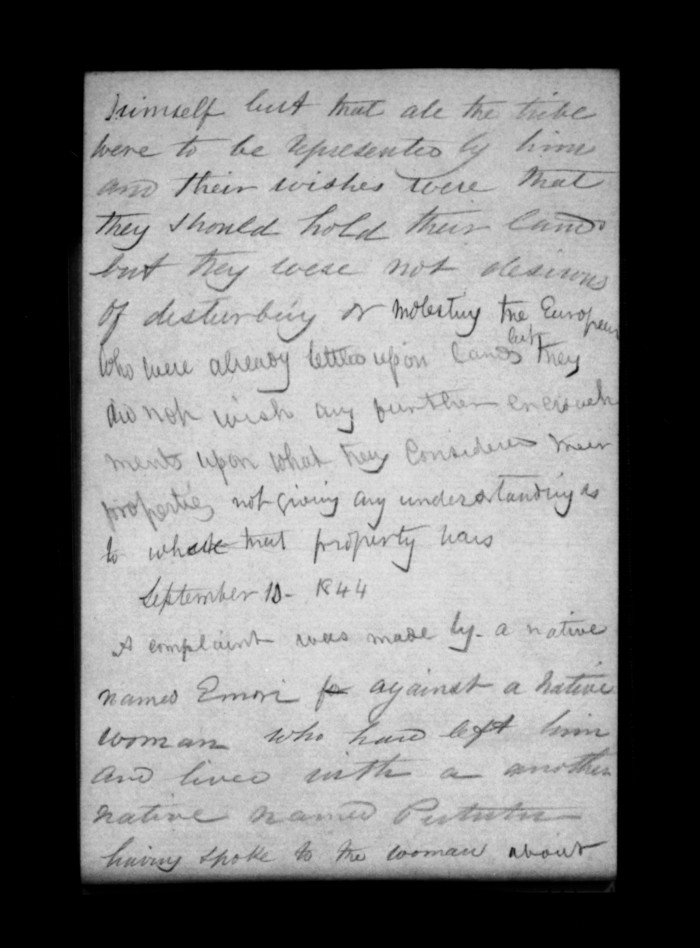 himself but that all the tribe
were to be represented by him
and their wishes were that
they should hold their land
but they were not desirous
of disturbing or molesting the European
who were already settled upon lands but they
did not wish any further encroach
ments upon what they considered their
properties not giving any understanding as
to what that property was
September 10 - 1844
A complaint was made by - a native
named Emori for against a native
woman who had left him
and lived with a another
native named
having spoke to the woman about